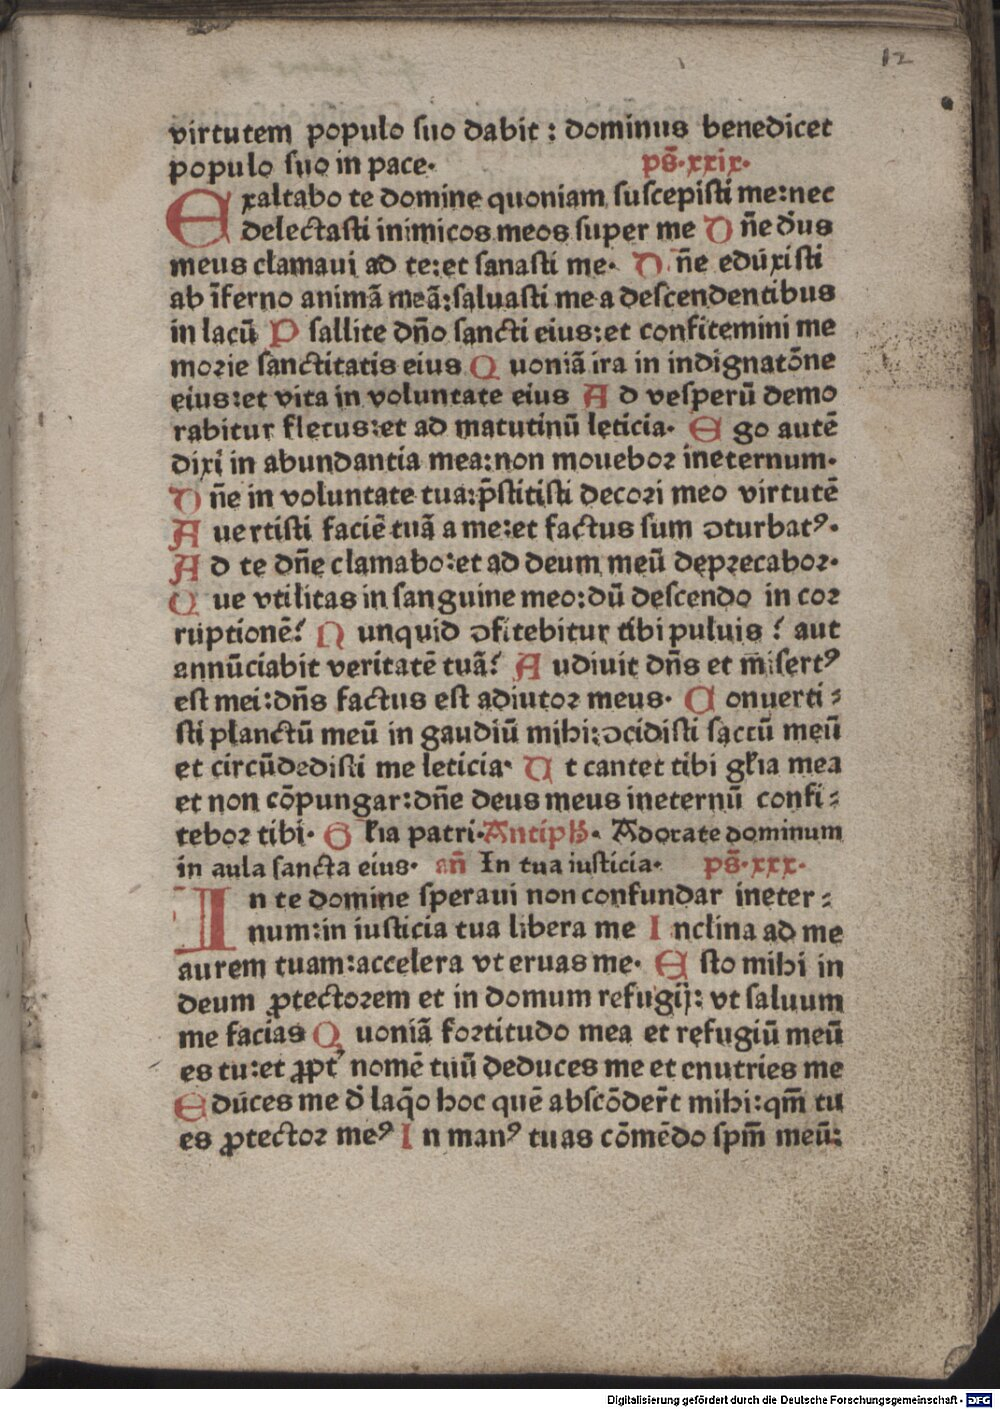 12
virtutem populo suo dabit : dominus benedicet
populo suo in pace. ps̄.xxix.
Exaltabo te domine quoniam suscepisti me:nec
delectasti inimicos meos super me Dn̄e d̓us
meus clamaui ad te:et sanasti me. Dn̄e eduxisti
ab īferno animā meā:saluasti me a descendentibus
in lacū Psallite dn̄o sancti eius:et confitemini me
morie sanctitatis eius Quoniā ira in indignatōne
eius:et vita in voluntate eius Ad vesperū demo
rabitur fletus:et ad matutinū leticia. Ego autē
dixi in abundantia mea:non mouebor ineternum.
Dn̄e in voluntate tua:p̄stitisti decori meo virtutē
Auertisti faciē tuā a me:et factus sum ↄturbatꝰ.
Ad te dn̄e clamabo:et ad deum meū deprecabor.
Que vtilitas in sanguine meo:dū descendo in cor
ruptionē? Nunquid ↄfitebitur tibi puluis ? aut
annūciabit veritatē tuā? Audiuit dn̄s et misertꝰ
est mei:dn̄s factus est adiutor meus. Conuerti⸗
sti planctū meū in gaudiū mihi:ↄcidisti saccū meū
et circūdedisti me leticia. Ut cantet tibi gl̄ia mea
et non cōpungar:dn̄e deus meus ineternū confi⸗
tebor tibi. Gl̄ia patri. Antiph. Adorate dominum
in aula sancta eius. an̄ In tua iusticia. ps̄.xxx.
In te domine speraui non confundar ineter⸗
num:in iusticia tua libera me Inclina ad me
aurem tuam:accelera vt eruas me. Esto mihi in
deum ꝓtectorem et in domum refugij: vt saluum
me facias Quoniā fortitudo mea et refugiū meū
es tu:et ꝓpt̓ nomē tuū deduces me et enutries me
Educes me d̓ laq̄o hoc quē abscōder̄t mihi:qm̄ tu
es ꝓtector meꝰ In manꝰ tuas cōmēdo spm̄ meū:
Digitalisierung gefördert durch die Deutsche Forschungsgemeinschaft - DFG